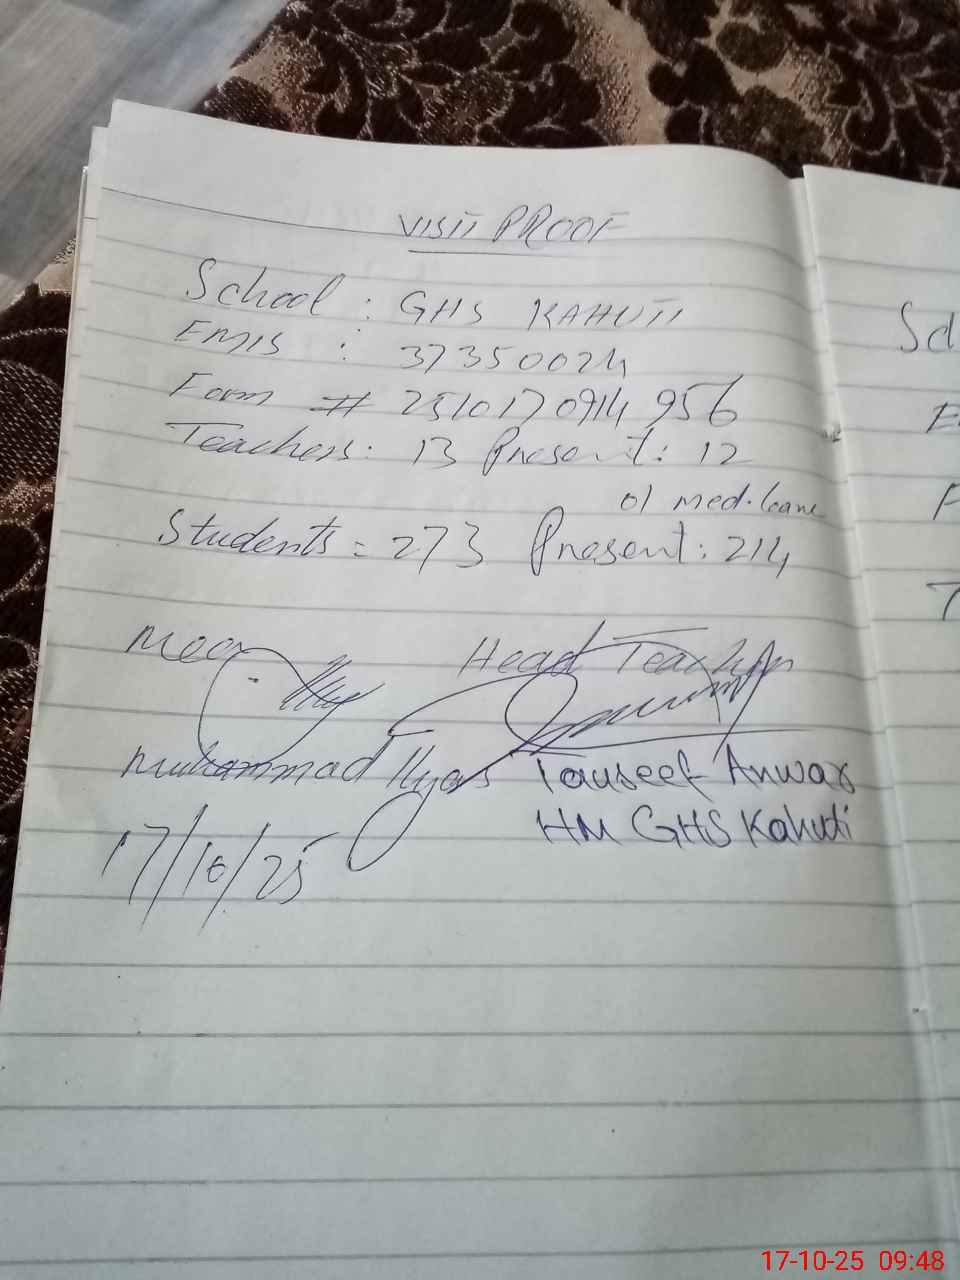 VISIT PROOF
School : GHS KAHUTI
EMIS : 37350024
Form # 2510170914956
Teachers: 13 Present: 12
01 med. leave
Students = 273 Present: 214
Mea
Head Teacher
Muhammad Ilyas Tauseef Anwar
HM GHS Kahuti
17/10/25
Sc
E
F
T
17-10-25 09:48